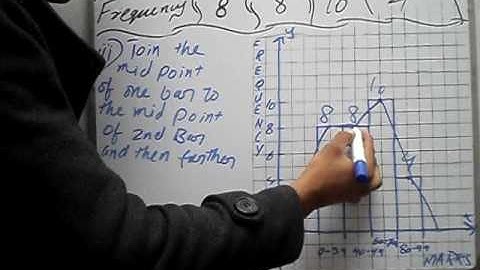 Frequency 8 8 10
ii) Join the
mid point
of one bar to
the mid point
of 2nd Bar
and then farther
FREEQUENCY
y
10
8
6
4
8 8 10 4
60-79 80-99
MARKS